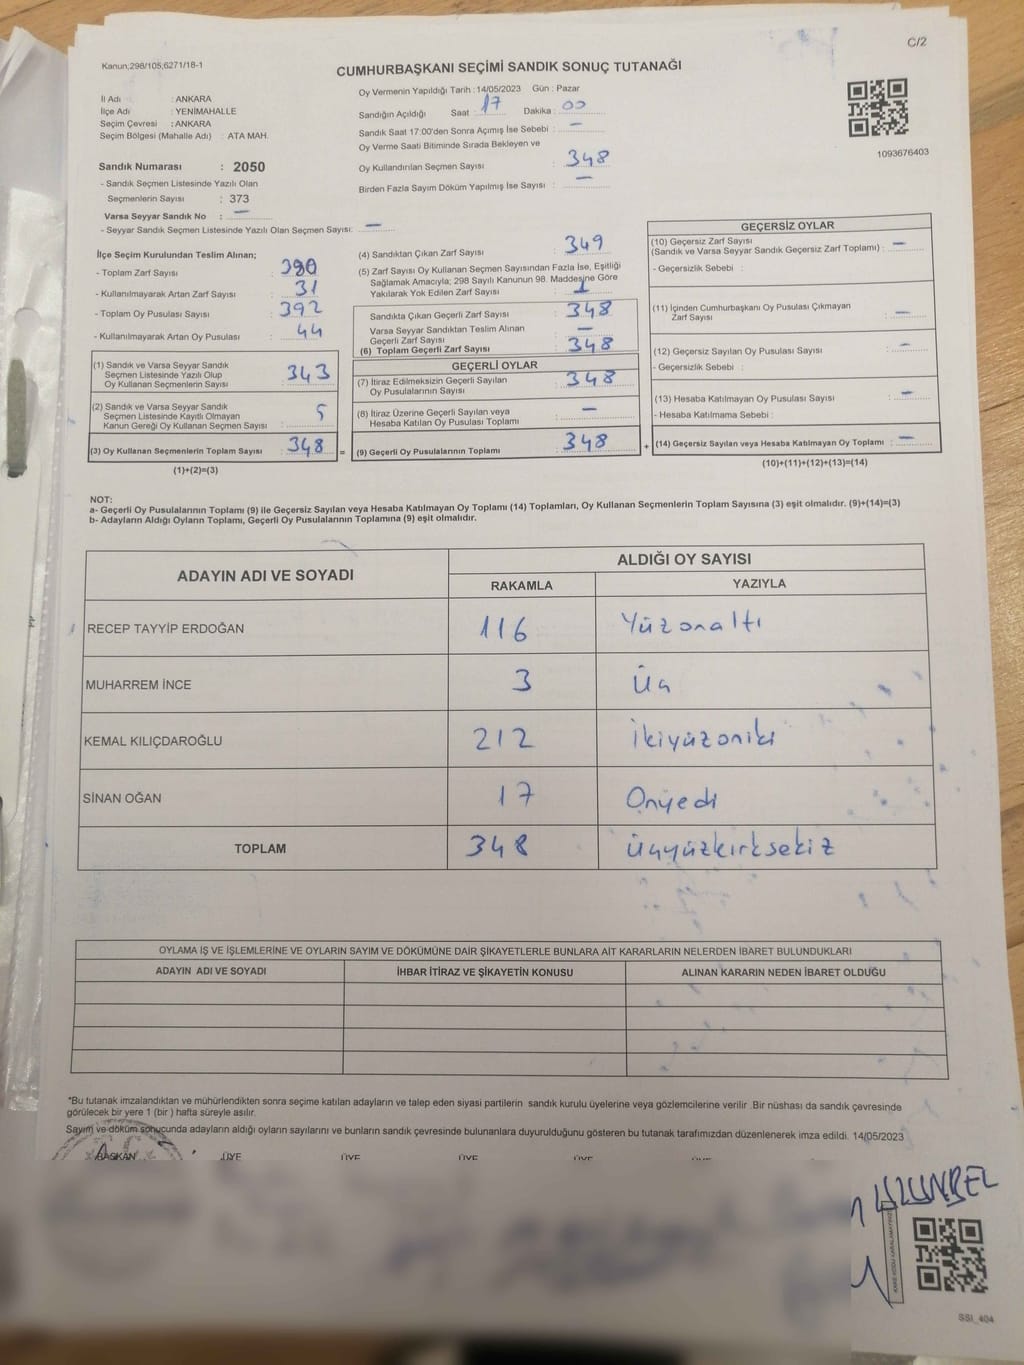 C/2
Kanun;298/105;6271/18-1
CUMHURBAŞKANI SEÇİMİ SANDIK SONUÇ TUTANAĞI
İl Adı : ANKARA
İlçe Adı : YENİMAHALLE
Seçim Çevresi : ANKARA
Seçim Bölgesi (Mahalle Adı) : ATA MAH.
Sandık Numarası : 2050
- Sandık Seçmen Listesinde Yazılı Olan
Seçmenlerin Sayısı : 373
Varsa Seyyar Sandık No : —
- Seyyar Sandık Seçmen Listesinde Yazılı Olan Seçmen Sayısı: —
Oy Vermenin Yapıldığı Tarih : 14/05/2023 Gün : Pazar
Sandığın Açıldığı Saat : 17 Dakika : 00
Sandık Saat 17:00'den Sonra Açımış İse Sebebi : —
Oy Verme Saati Bitiminde Sırada Bekleyen ve
Oy Kullandırılan Seçmen Sayısı : 348
Birden Fazla Sayım Döküm Yapılmış İse Sayısı : —
1093676403
İlçe Seçim Kurulundan Teslim Alınan;
- Toplam Zarf Sayısı : 380
- Kullanılmayarak Artan Zarf Sayısı : 31
- Toplam Oy Pusulası Sayısı : 392
- Kullanılmayarak Artan Oy Pusulası : 44
(1) Sandık ve Varsa Seyyar Sandık
Seçmen Listesinde Yazılı Olup
Oy Kullanan Seçmenlerin Sayısı : 343
(2) Sandık ve Varsa Seyyar Sandık
Seçmen Listesinde Kayıtlı Olmayan
Kanun Gereği Oy Kullanan Seçmen Sayısı : 5
(3) Oy Kullanan Seçmenlerin Toplam Sayısı : 348 =
(1)+(2)=(3)
(4) Sandıktan Çıkan Zarf Sayısı : 349
(5) Zarf Sayısı Oy Kullanan Seçmen Sayısından Fazla İse, Eşitliği
Sağlamak Amacıyla; 298 Sayılı Kanunun 98. Maddesine Göre
Yakılarak Yok Edilen Zarf Sayısı : 1
Sandıkta Çıkan Geçerli Zarf Sayısı : 348
Varsa Seyyar Sandıktan Teslim Alınan
Geçerli Zarf Sayısı : —
(6) Toplam Geçerli Zarf Sayısı : 348
GEÇERLİ OYLAR
(7) İtiraz Edilmeksizin Geçerli Sayılan
Oy Pusulalarının Sayısı : 348
(8) İtiraz Üzerine Geçerli Sayılan veya
Hesaba Katılan Oy Pusulası Toplamı : —
(9) Geçerli Oy Pusulalarının Toplamı : 348 +
GEÇERSİZ OYLAR
(10) Geçersiz Zarf Sayısı
(Sandık ve Varsa Seyyar Sandık Geçersiz Zarf Toplamı) : —
- Geçersizlik Sebebi :
(11) İçinden Cumhurbaşkanı Oy Pusulası Çıkmayan
Zarf Sayısı : —
(12) Geçersiz Sayılan Oy Pusulası Sayısı : —
- Geçersizlik Sebebi :
(13) Hesaba Katılmayan Oy Pusulası Sayısı : —
- Hesaba Katılmama Sebebi :
(14) Geçersiz Sayılan veya Hesaba Katılmayan Oy Toplamı : —
(10)+(11)+(12)+(13)=(14)
NOT:
a- Geçerli Oy Pusulalarının Toplamı (9) ile Geçersiz Sayılan veya Hesaba Katılmayan Oy Toplamı (14) Toplamları, Oy Kullanan Seçmenlerin Toplam Sayısına (3) eşit olmalıdır. (9)+(14)=(3)
b- Adayların Aldığı Oyların Toplamı, Geçerli Oy Pusulalarının Toplamına (9) eşit olmalıdır.
ADAYIN ADI VE SOYADI ALDIĞI OY SAYISI
RAKAMLA YAZIYLA
RECEP TAYYİP ERDOĞAN 116 Yüzonaltı
MUHARREM İNCE 3 Üç
KEMAL KILIÇDAROĞLU 212 İkiyüzoniki
SİNAN OĞAN 17 Onyedi
TOPLAM 348 Üçyüzkırksekiz
OYLAMA İŞ VE İŞLEMLERİNE VE OYLARIN SAYIM VE DÖKÜMÜNE DAİR ŞİKAYETLERLE BUNLARA AİT KARARLARIN NELERDEN İBARET BULUNDUKLARI
ADAYIN ADI VE SOYADI İHBAR İTİRAZ VE ŞİKAYETİN KONUSU ALINAN KARARIN NEDEN İBARET OLDUĞU
*Bu tutanak imzalandıktan ve mühürlendikten sonra seçime katılan adayların ve talep eden siyasi partilerin sandık kurulu üyelerine veya gözlemcilerine verilir .Bir nüshası da sandık çevresinde
görülecek bir yere 1 (bir ) hafta süreyle asılır.
Sayım ve döküm sonucunda adayların aldığı oyların sayılarını ve bunların sandık çevresinde bulunanlara duyurulduğunu gösteren bu tutanak tarafımızdan düzenlenerek imza edildi. 14/05/2023
BAŞKAN ÜYE ÜYE ÜYE ÜYE ÜYE
SSI_404